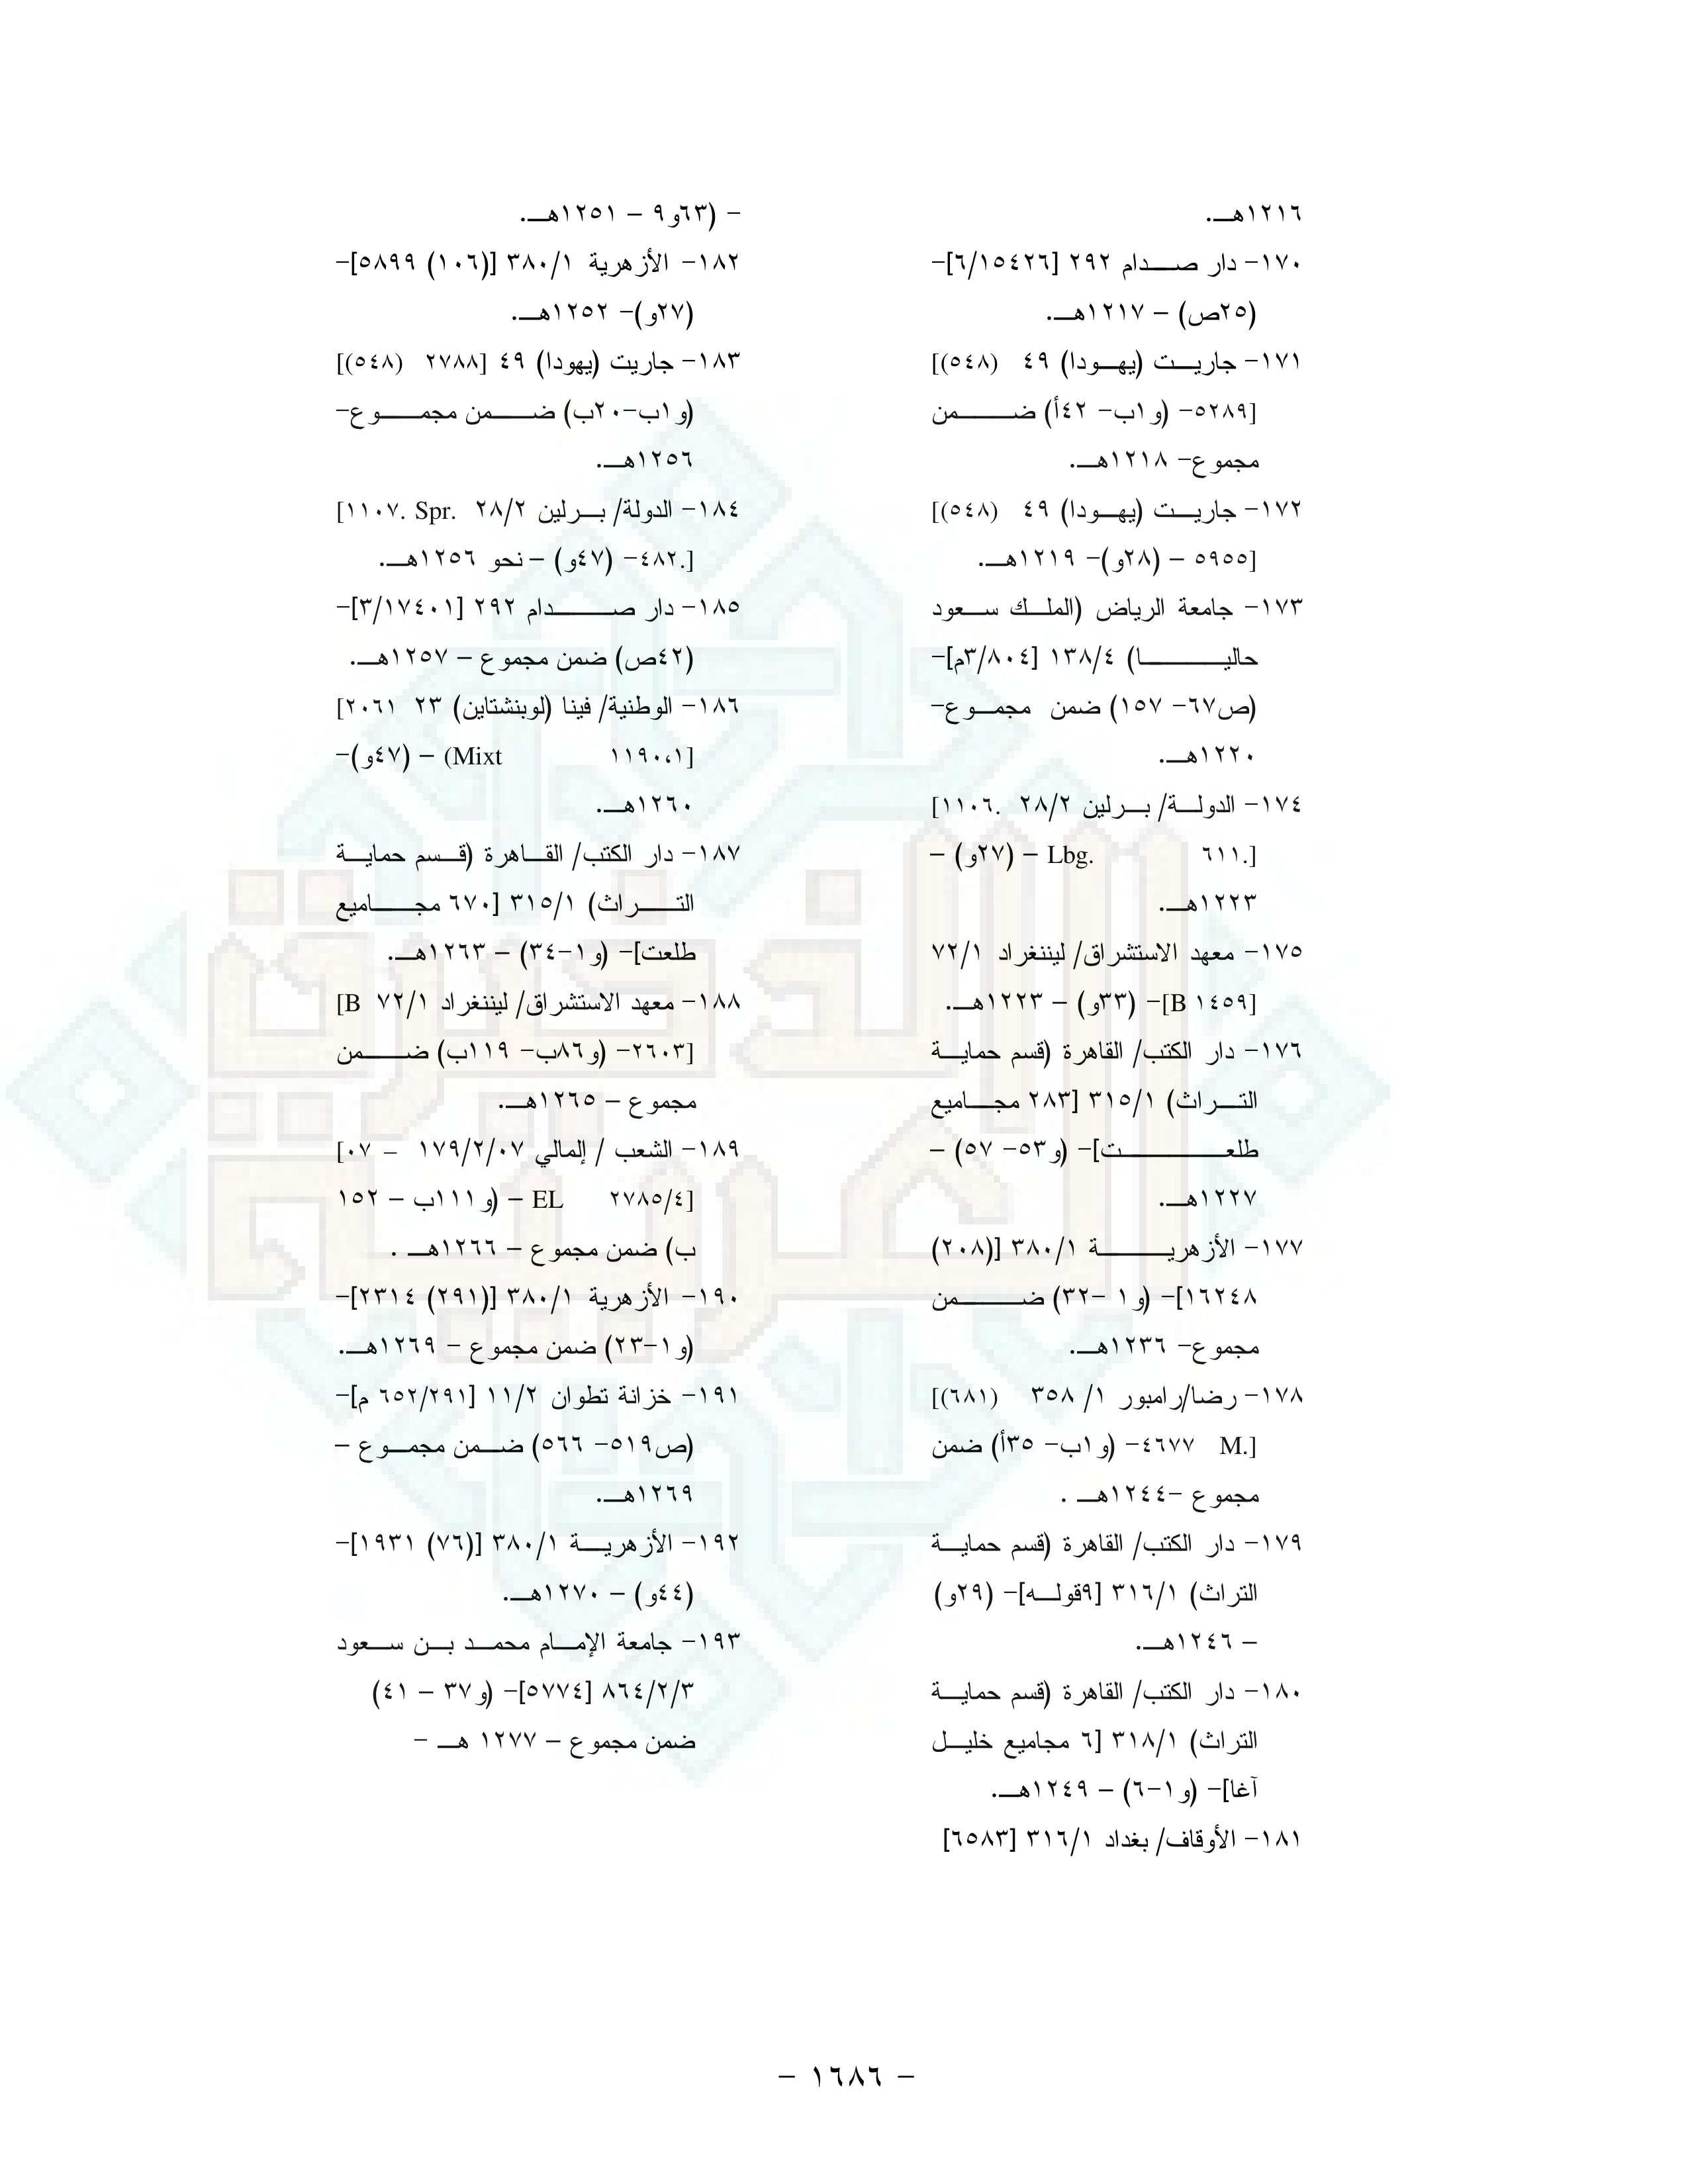 ١٢١٦هـ.
١٧٠- دار صدام ٢٩٢ [٦/١٥٤٢٦]-
(٢٥ص) – ١٢١٧هـ.
١٧١- جاريت (يهودا) ٤٩ (٥٤٨)]
[٥٢٨٩- (و١ب- ٤٢أ) ضمن
مجموع- ١٢١٨هـ.
١٧٢- جاريت (يهودا) ٤٩ (٥٤٨)]
[٥٩٥٥ – (٢٨و)- ١٢١٩هـ.
١٧٣- جامعة الرياض (الملك سعود
حاليا) ١٣٨/٤ [٣/٨٠٤م]-
(ص٦٧- ١٥٧) ضمن مجموع-
١٢٢٠هـ.
١٧٤- الدولة/ برلين ٢٨/٢ .١١٠٦]
[.٦١١ Lbg. – (٢٧و) –
١٢٢٣هـ.
١٧٥- معهد الاستشراق/ ليننغراد ٧٢/١
[B ١٤٥٩]- (٣٣و) – ١٢٢٣هـ.
١٧٦- دار الكتب/ القاهرة (قسم حماية
التراث) ٣١٥/١ [٢٨٣ مجاميع
طلعت]- (و٥٣- ٥٧) –
١٢٢٧هـ.
١٧٧- الأزهرية ٣٨٠/١ [(٢٠٨)
١٦٢٤٨]- (و١ -٣٢) ضمن
مجموع- ١٢٣٦هـ.
١٧٨- رضا/رامبور ١/ ٣٥٨ (٦٨١)]
[.M ٤٦٧٧- (و١ب- ٣٥أ) ضمن
مجموع -١٢٤٤هـ .
١٧٩- دار الكتب/ القاهرة (قسم حماية
التراث) ٣١٦/١ [٩قوله]- (٢٩و)
– ١٢٤٦هـ.
١٨٠- دار الكتب/ القاهرة (قسم حماية
التراث) ٣١٨/١ [٦ مجاميع خليل
آغا]- (و١-٦) – ١٢٤٩هـ.
١٨١- الأوقاف/ بغداد ٣١٦/١ [٦٥٨٣]
- (٦٣و٩ – ١٢٥١هـ.
١٨٢- الأزهرية ٣٨٠/١ [(١٠٦) ٥٨٩٩]-
(٢٧و)- ١٢٥٢هـ.
١٨٣- جاريت (يهودا) ٤٩ [٢٧٨٨ (٥٤٨)]
(و١ب-٢٠ب) ضمن مجموع-
١٢٥٦هـ.
١٨٤- الدولة/ برلين ٢٨/٢ .Spr .١١٠٧]
[.٤٨٢- (٤٧و) – نحو ١٢٥٦هـ.
١٨٥- دار صدام ٢٩٢ [٣/١٧٤٠١]-
(٤٢ص) ضمن مجموع – ١٢٥٧هـ.
١٨٦- الوطنية/ فينا (لوبنشتاين) ٢٣ ٢٠٦١]
[١١٩٠،١ Mixt) – (٤٧و)-
١٢٦٠هـ.
١٨٧- دار الكتب/ القاهرة (قسم حماية
التراث) ٣١٥/١ [٦٧٠ مجاميع
طلعت]- (و١-٣٤) – ١٢٦٣هـ.
١٨٨- معهد الاستشراق/ ليننغراد ٧٢/١ B]
[٢٦٠٣- (و٨٦ب- ١١٩ب) ضمن
مجموع – ١٢٦٥هـ.
١٨٩- الشعب / إلمالي ١٧٩/٢/٠٧ – ٠٧]
[٢٧٨٥/٤ EL – (و١١١ب – ١٥٢
ب) ضمن مجموع – ١٢٦٦هـ .
١٩٠- الأزهرية ٣٨٠/١ [(٢٩١) ٢٣١٤]-
(و١-٢٣) ضمن مجموع – ١٢٦٩هـ.
١٩١- خزانة تطوان ١١/٢ [٦٥٢/٢٩١ م]-
(ص٥١٩- ٥٦٦) ضمن مجموع –
١٢٦٩هـ.
١٩٢- الأزهرية ٣٨٠/١ [(٧٦) ١٩٣١]-
(٤٤و) – ١٢٧٠هـ.
١٩٣- جامعة الإمام محمد بن سعود
٨٦٤/٢/٣ [٥٧٧٤]- (و٣٧ – ٤١)
ضمن مجموع – ١٢٧٧ هـ -
- ١٦٨٦ -